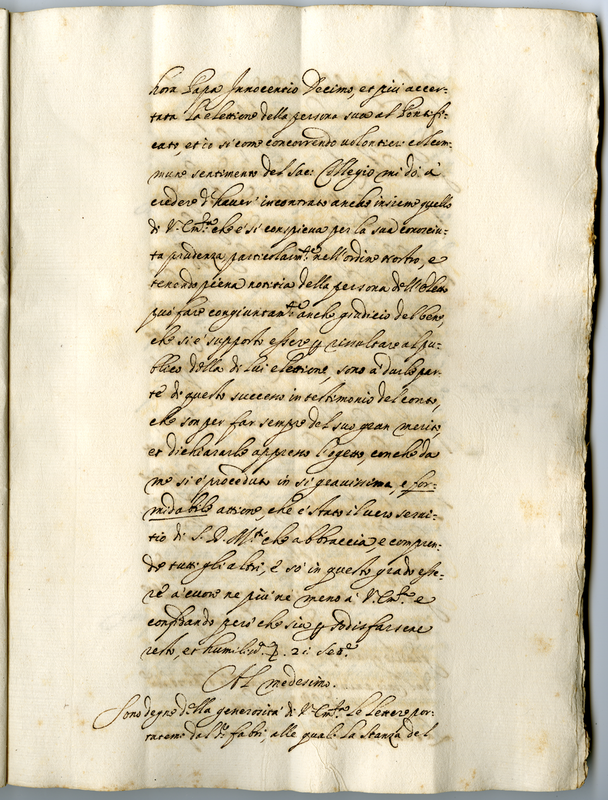 hora Papa Innocentio Decimo, et più accer-
tata la elettione della persona sua al Pontifi-
cato, et io si come concorrendo volontieri col com-
mune sentimento del Sac: Collegio mi dò à
credere d'haver incontrato anche insieme quello
di V. Em.ª che è sì conspicua per la sua conosciu-
ta prudenza particolarm.te nell'ordine nostro, e
tenendo piena notitia della persona dell'eletto
può fare congiuntam.te anche giudicio del bene,
che si è supposto essere risultare al pu-
blico della di lui elettione, sono à darle par-
te di questo successo in testimonio del conto,
che son per far sempre del suo gran merito,
et dichiararle appresso l'ogetto, con che da
me si è proceduto in sì gravissima, e for-
midabile attione, che è stato il vero servi-
tio di S. D. M.tà che abbraccia, e compren-
de tutti gli altri, e sò in questo grado esse-
re à cuore ne più ne meno à V. Em.ª e
confidando però che sia sodisfarsene
resto, et humiliss.e 21 Sett.e
Al medesimo.
Sono degne della generosità di V. Em.ª le lettere por-
tateme dal Fabri, alle quali la stanza del